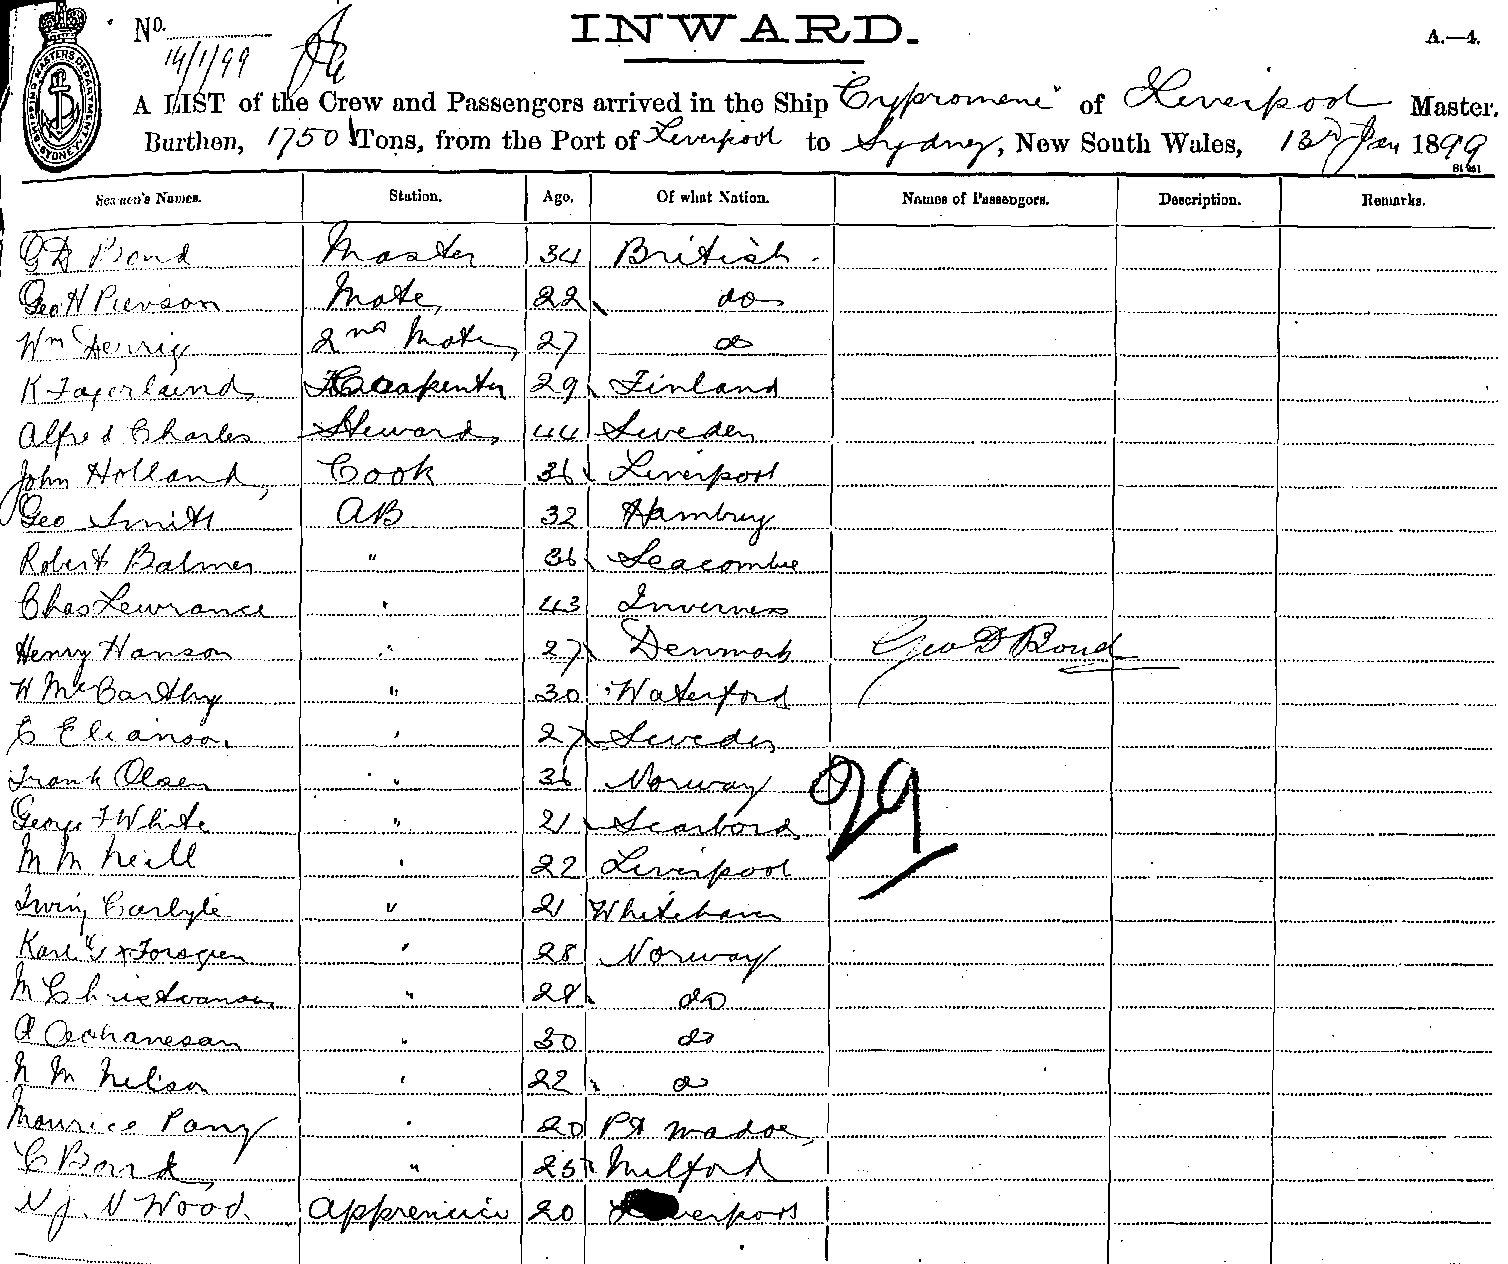 No.
14/1/99
INWARD.
A.—4.
SHIPPING MASTERS DEPARTMENT SYDNEY
A LIST of the Crew and Passengers arrived in the Ship "Cypromene" of Liverpool Master.
Burthen, 1750 Tons, from the Port of Liverpool to Sydney, New South Wales, 13th Jan 1899
Seamen's Names. Station. Age. Of what Nation. Names of Passengers. Description. Remarks.
G D Bond Master 34 British
Geo H Pierson Mate 22 do
Wm Derrig 2nd Mate 27 do
K Fagerlund Carpenter 29 Finland
Alfred Charles Steward 44 Sweden
John Holland, Cook 36 Liverpool
Geo Smith AB 32 Hamburg
Robert Balmer " 36 Seacombe
Chas Lewrance " 43 Inverness
Henry Hanson " 27 Denmark Geo D Bond
W McCarthy " 30 Waterford
C Elianson " 27 Sweden
Frank Olsen " 36 Norway
29
George F White " 21 Scarboro
M McNeill " 22 Liverpool
Irving Carlyle " 21 Whitehaven
Karl Forsgren " 28 Norway
M Christianson " 28 do
A " 30 do
N M Nelson " 22 do
Maurice Parry " 20 Pt Madoc,
C Bond, " 25 Milford
N J N Wood Apprentice 20 Liverpool